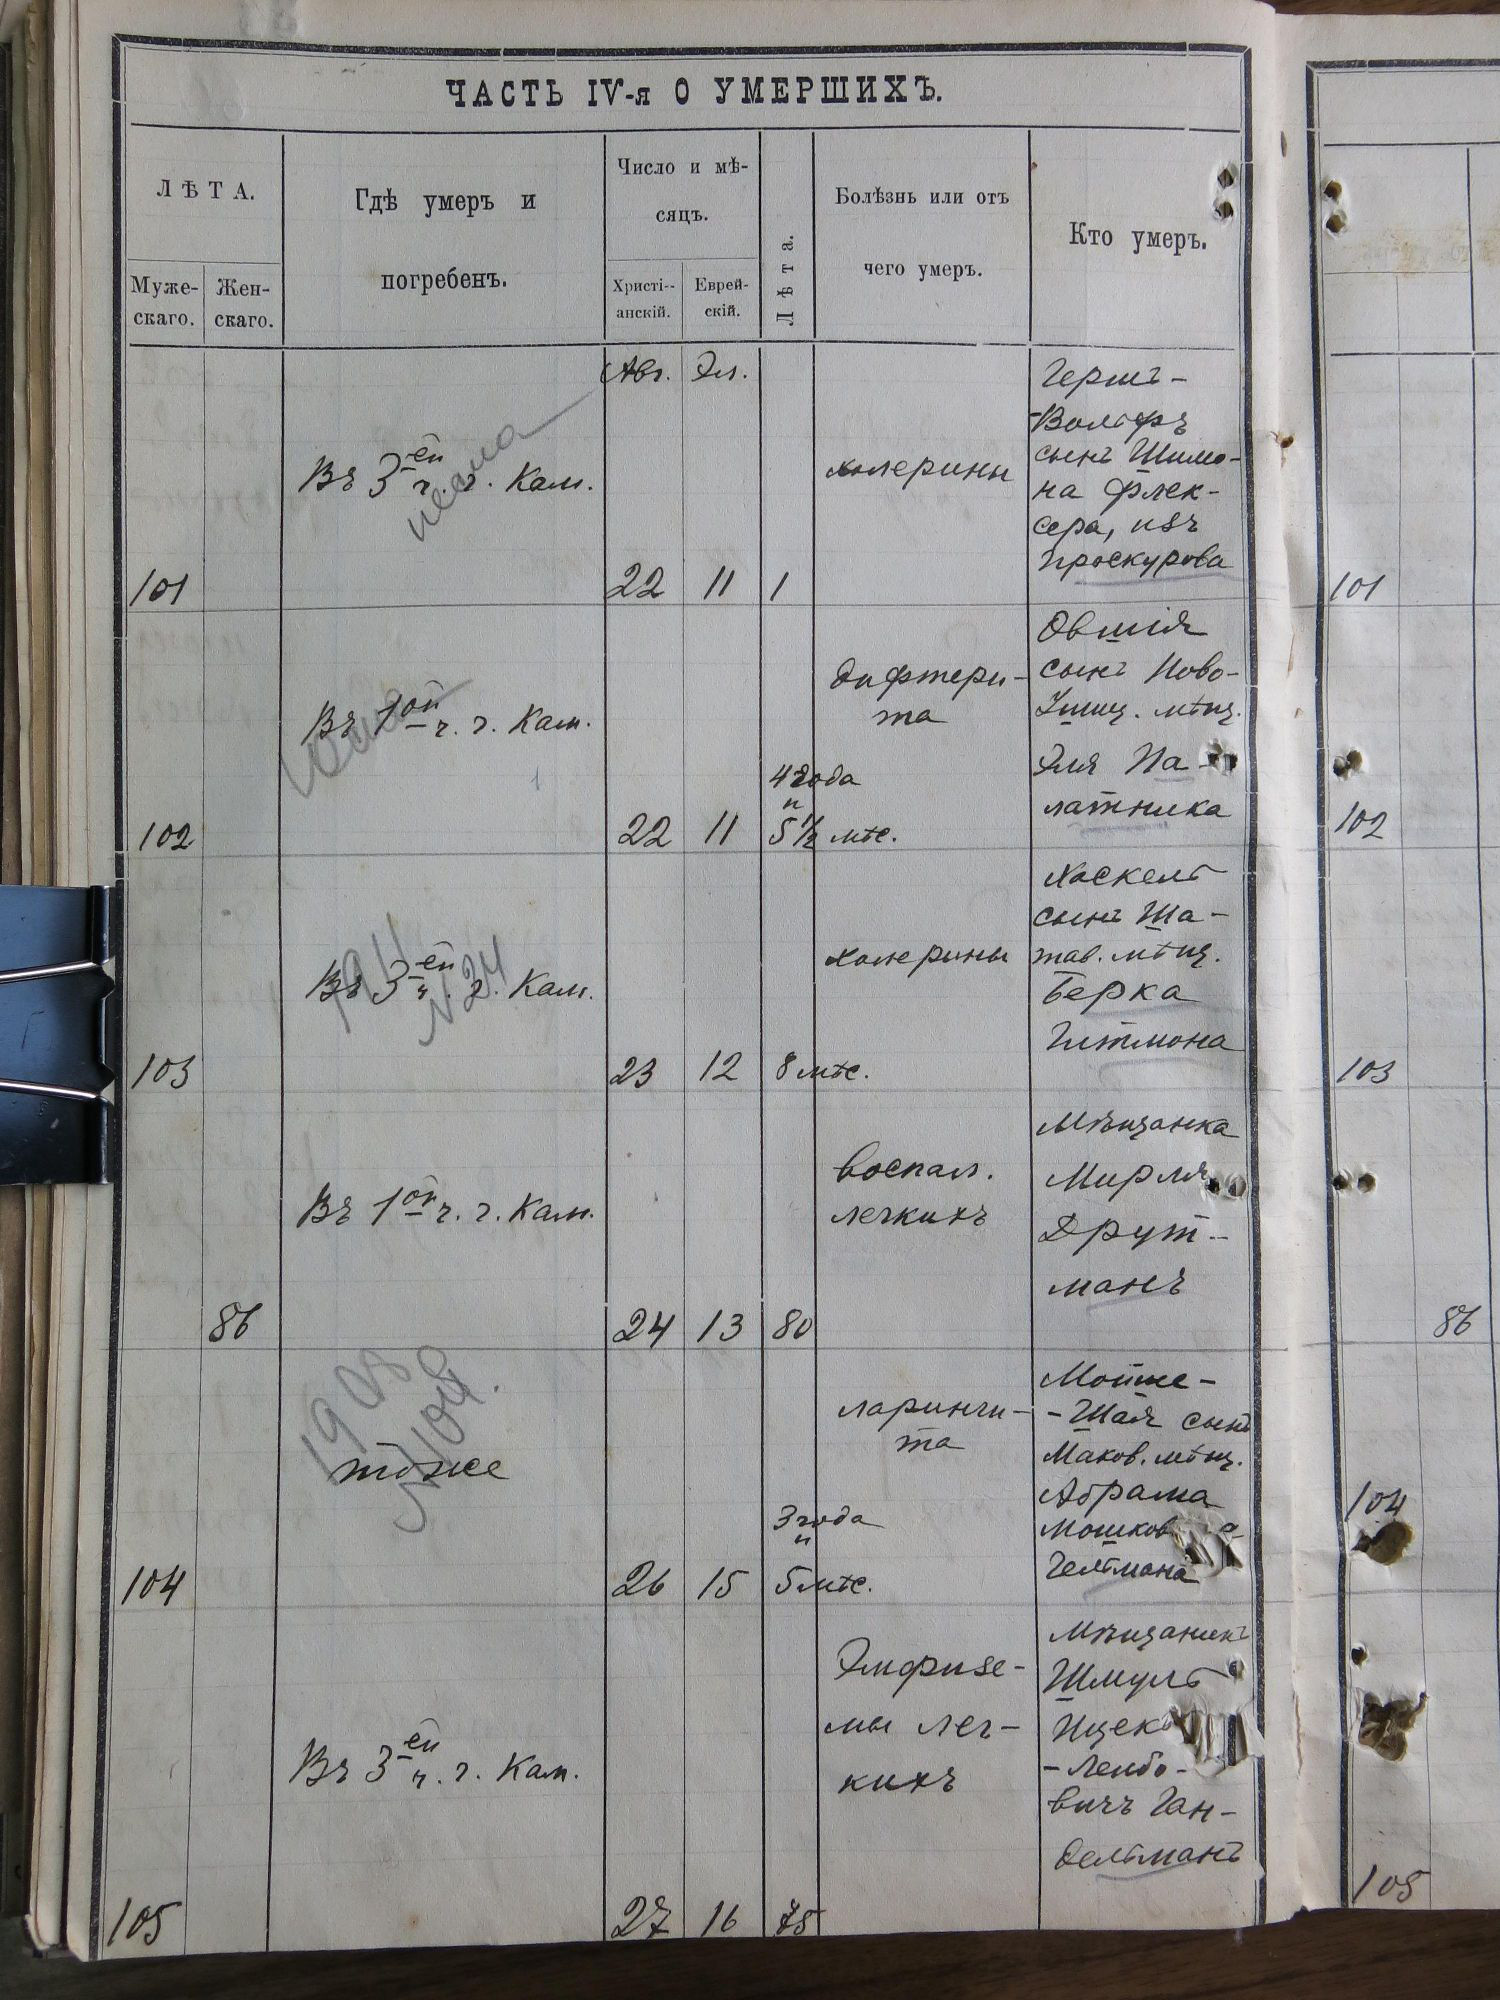 ЧАСТЬ IV-я О УМЕРШИХЪ.
ЛѢТА.
Муже-
скаго.
Жен-
скаго.
Гдѣ умеръ и
погребенъ.
Число и мѣ-
сяцъ.
Христі-
анскій.
Еврей-
скій.
Лѣта.
Болѣзнь или отъ
чего умеръ.
Кто умеръ.
Авг. Эл.
101
Въ 3ей ч. г. Кам.
22 11 1
холерины
Гершъ-
-Вольфъ
сынъ Шимо-
на Флек-
сера, изъ
Проскурова
101
102
Въ 1ой ч. г. Кам.
22 11
4 года
и
5 1/2 мѣс.
дифтери-
та
Овшія
сынъ Ново-
Ушиц. мѣщ.
Эля Па-
латника
102
103
Въ 3ей ч. г. Кам.
1911
N 24
23 12 8 мѣс.
холерины
Хаскель
сынъ Ша-
тав. мѣщ.
Берка
Гитмана
103
86
Въ 1ой ч. г. Кам.
24 13 80
воспал.
легкихъ
Мѣщанка
Мирля
Друт-
манъ
86
104
тоже
1908
26 15
3 года
и
5 мѣс.
ларинги-
та
Мойше-
-Шая сынъ
Маков. мѣщ.
Абрама
Гельмана
104
105
Въ 3ей ч. г. Кам.
27 16 75
Эмфизе-
мы лег-
кихъ
Мѣщанинъ
Шмуль
Ицек
-Лейбо-
вичъ Ган-
дельманъ
105